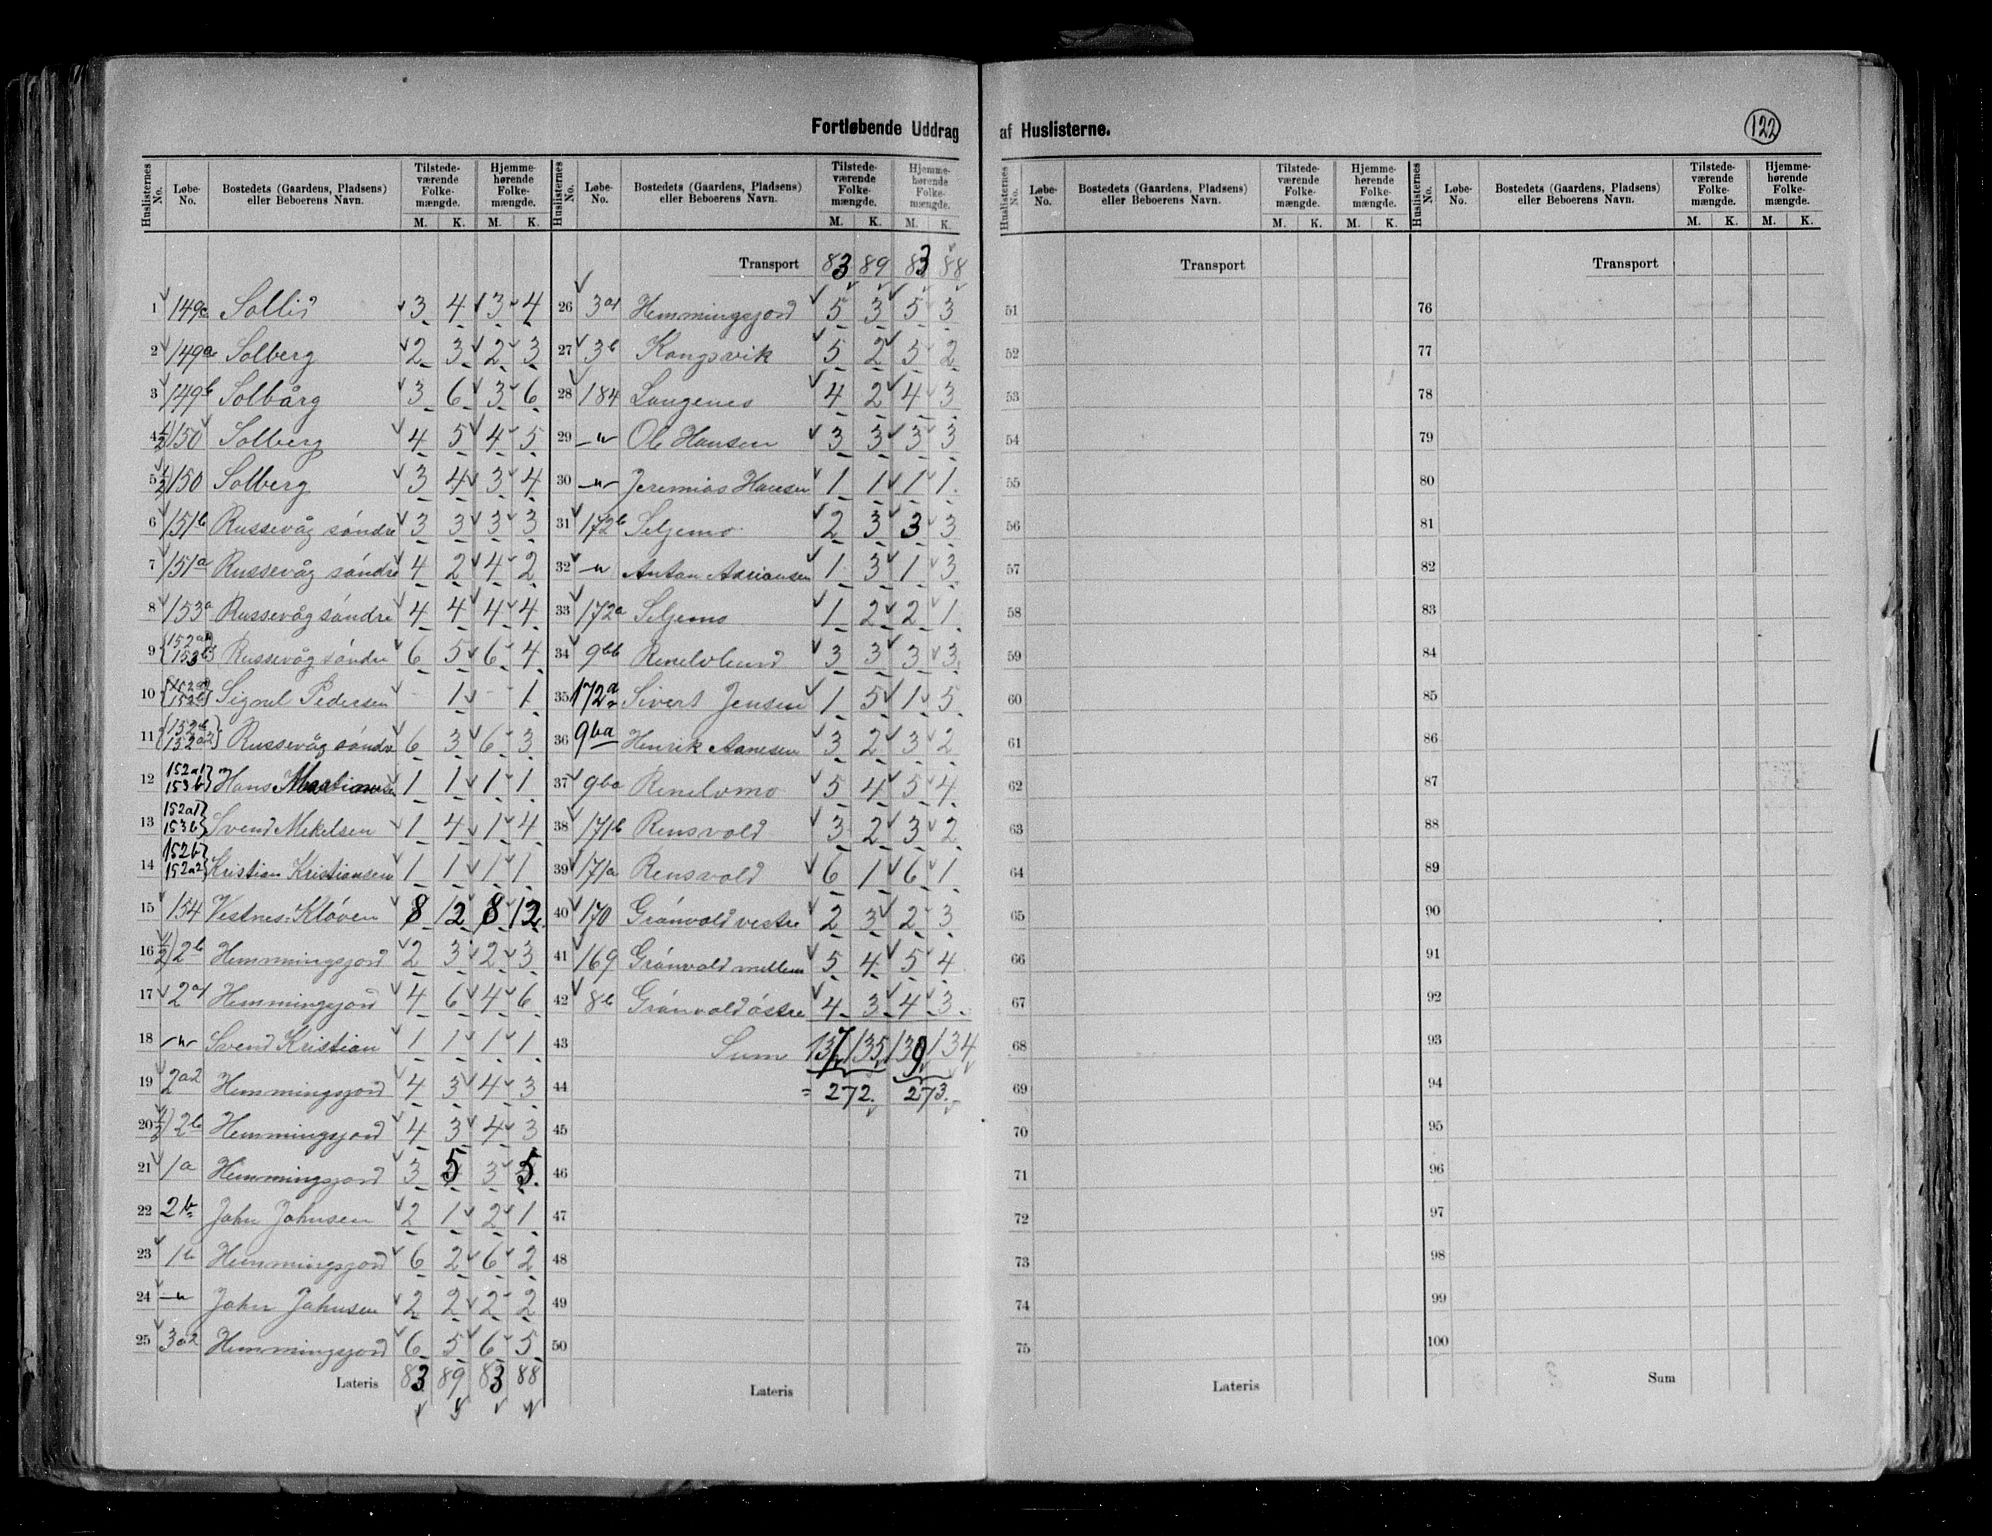 Fortløbende Uddrag af Huslisterne.
122
Huslisternes No. | Løbe-No. | Bostedets (Gaardens, Pladsens) eller Beboerens Navn. | Tilstedeværende Folkemængde. M. K. | Hjemmehørende Folkemængde. M. K.
1 149a Sollid 3 4 3 4
2 149a Solberg 2 3 2 3
3 149b Solbårg 3 6 3 6
4 1/2) 150 Solberg 4 5 4 5
5 1/2) 150 Solberg 3 4 3 4
6 151b Russevåg söndre 3 3 3 3
7 151a Russevåg söndre 4 2 4 2
8 153a Russevåg söndre 4 4 4 4
9 {152a1 153b} Russevåg söndre 6 5 6 4
10 Signel Pedersen - 1 - 1
11 {152b 152a2} Russevåg söndre 6 3 6 3
12 152a1} 153b} Hans 1 1 1 1
13 152a1} 153b} Svend Mikelsen 1 4 1 4
14 152b} 152a2} Kristian Kristiansen 1 1 1 1
15 154 Vestnes-Klöven 8 12 8 12
16 1/2) 2b Hemmingsjord 2 3 2 3
17 2a1 Hemmingsjord 4 6 4 6
18 —"— Svend Kristian 1 1 1 1
19 2a2 Hemmingsjord 4 3 4 3
20 1/2) 2b Hemmingsjord 4 3 4 3
21 1a Hemmingsjord 3 5 3 5
22 2b John Johnsen 2 1 2 1
23 1b Hemmingsjord 6 2 6 2
24 —"— John Johnsen 2 2 2 2
25 3a2 Hemmingsjord 6 5 6 5
Lateris 83 89 83 88
Huslisternes No. | Løbe-No. | Bostedets (Gaardens, Pladsens) eller Beboerens Navn. | Tilstedeværende Folkemængde. M. K. | Hjemmehørende Folkemængde. M. K.
Transport 83 89 83 88
26 3a1 Hemmingsjord 5 3 5 3
27 3b Kongsvik 5 2 5 2
28 184 Langenes 4 2 4 3
29 —"— Ole Hansen 3 3 3 3
30 —"— Jeremias Hansen 1 1 1 1
31 172b Seljemo 2 3 3 3
32 —"— Anton Adriansen 1 3 1 3
33 172a Seljemo 1 2 2 1
34 9bb Renelvlund 3 3 3 3
35 172a Sivert Jensen 1 5 1 5
36 9ba Henrik 3 2 3 2
37 9ba Renelvmo 5 4 5 4
38 171b Rensvold 3 2 3 2
39 171a Rensvold 6 1 6 1
40 170 Grönvold vestre 2 3 2 3
41 169 Grönvold mellem 5 4 5 4
42 8b Grönvold östre 4 3 4 3
43 Sum 137 135 139 134
44 = 272. 273.
45
46
47
48
49
50
Lateris
Huslisternes No. | Løbe-No. | Bostedets (Gaardens, Pladsens) eller Beboerens Navn. | Tilstedeværende Folkemængde. M. K. | Hjemmehørende Folkemængde. M. K.
Transport
51
52
53
54
55
56
57
58
59
60
61
62
63
64
65
66
67
68
69
70
71
72
73
74
75
Lateris
Huslisternes No. | Løbe-No. | Bostedets (Gaardens, Pladsens) eller Beboerens Navn. | Tilstedeværende Folkemængde. M. K. | Hjemmehørende Folkemængde. M. K.
Transport
76
77
78
79
80
81
82
83
84
85
86
87
88
89
90
91
92
93
94
95
96
97
98
99
100
Sum